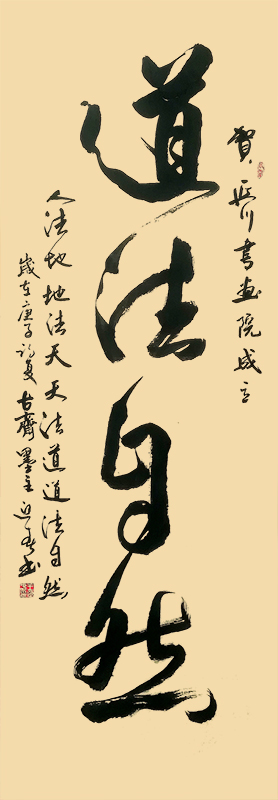 賀 延川書画院成立
道法自然
人法地地法天天法道道法自然
歲在庚子初夏古齊墨主